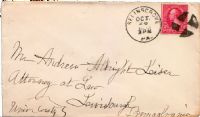 SELINSGROVE
OCT
3 PM
PA.
Mr Andrew Albright Leiser
Attorney at Law
Lewisburg
Union County
Pennsylvania